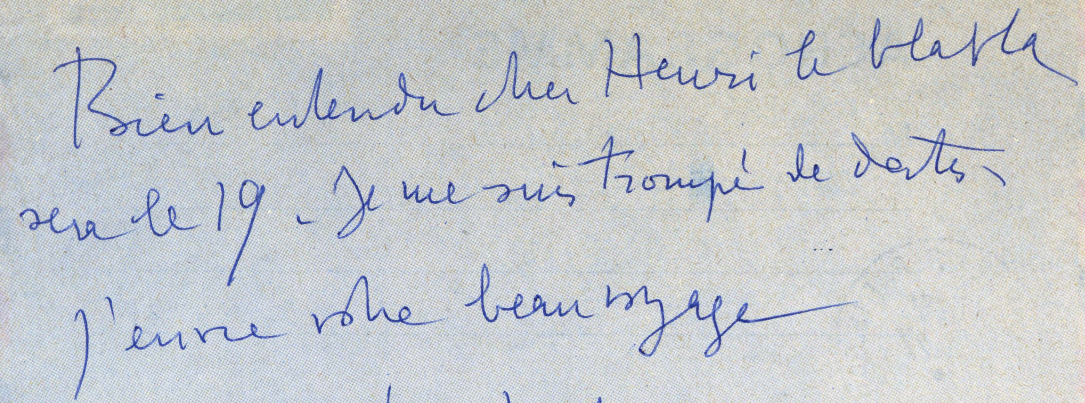 Bien entendu cher Henri le blabla
sera le 19. Je me suis trompé de dates.
J'envie votre beau voyage